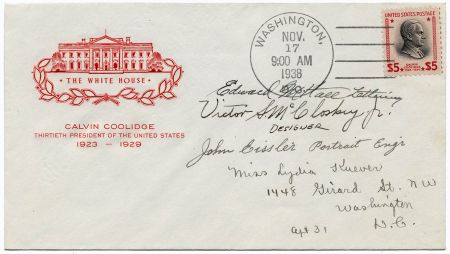 · THE WHITE HOUSE ·
CALVIN COOLIDGE
THIRTIETH PRESIDENT OF THE UNITED STATES
1923 — 1929
WASHINGTON,
NOV.
17
9:00 AM
1938
UNITED STATES POSTAGE
$5 $5
Edward Hall Lettering
Victor S. McCloskey Jr.
DESIGNER
John Eissler Portrait Engr
Miss Lydia Kuever
1448 Girard St. NW
Washington
D.C.
Apt 31